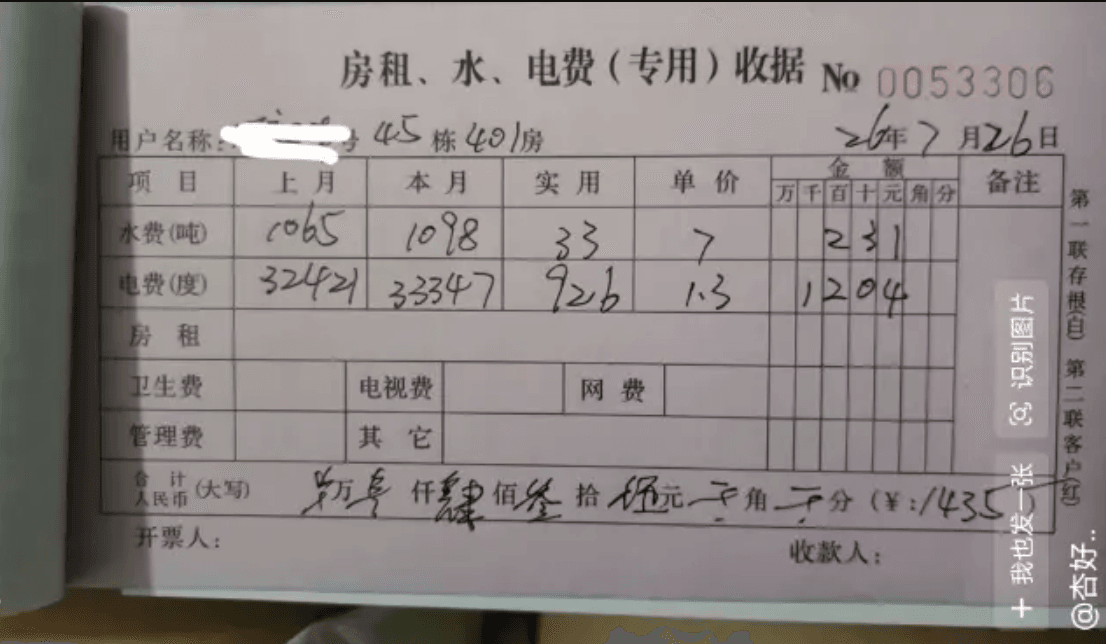 房租、水、电费(专用)收据 No 0053306
用户名称: 号 45 栋 401 房 26年7月26日
项目 上月 本月 实用 单价 金额 备注
万 千 百 十 元 角 分
水费(吨) 1065 1098 33 7 231
电费(度) 32421 33347 926 1.3 1204
房租
卫生费 电视费 网费
管理费 其它
合计人民币(大写) 万 仟肆佰叁拾伍元 角 分(¥:1435)
开票人: 收款人:
第一联存根(白) 第二联客户(红)
识别图片
+ 我也发一张
@杏好..